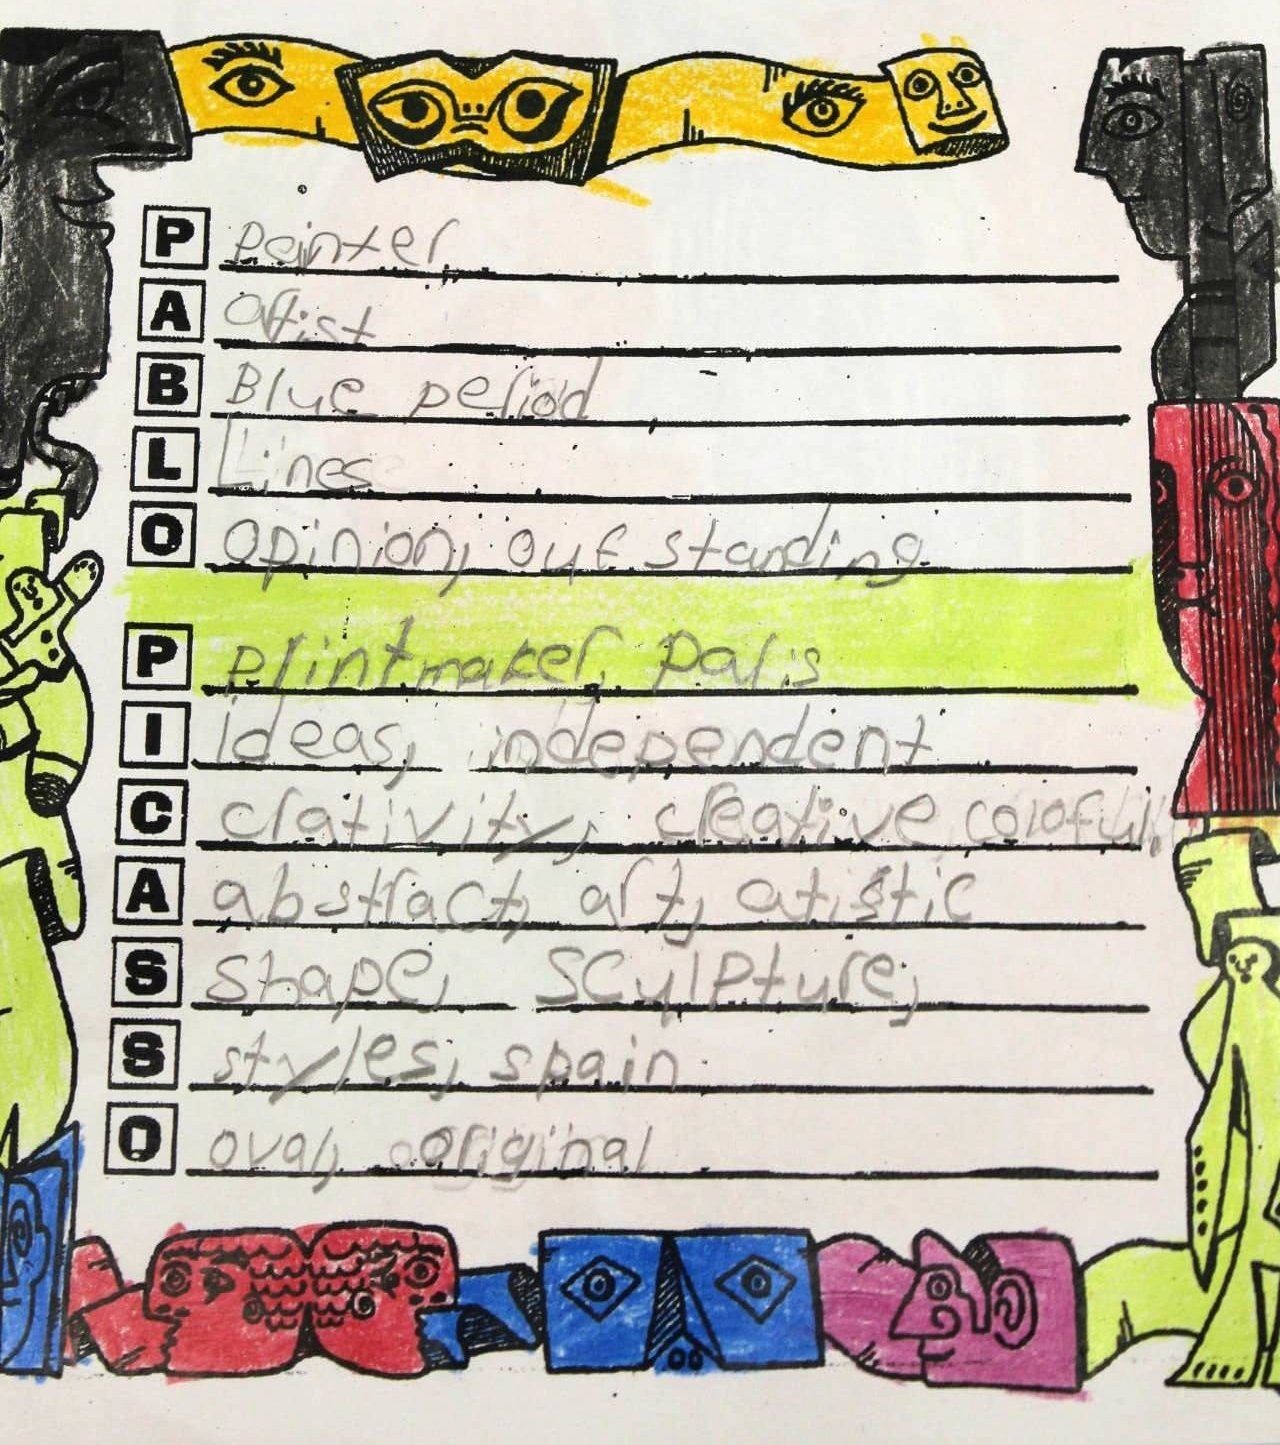 P Painter
A artist
B Blue period
L Lines
O opinion, out standing
P printmaker, paris
I ideas, independent
C crativity, creative colorful,
A abstract, art, atistic
S shape, sculpture,
S styles, spain
O oval, original